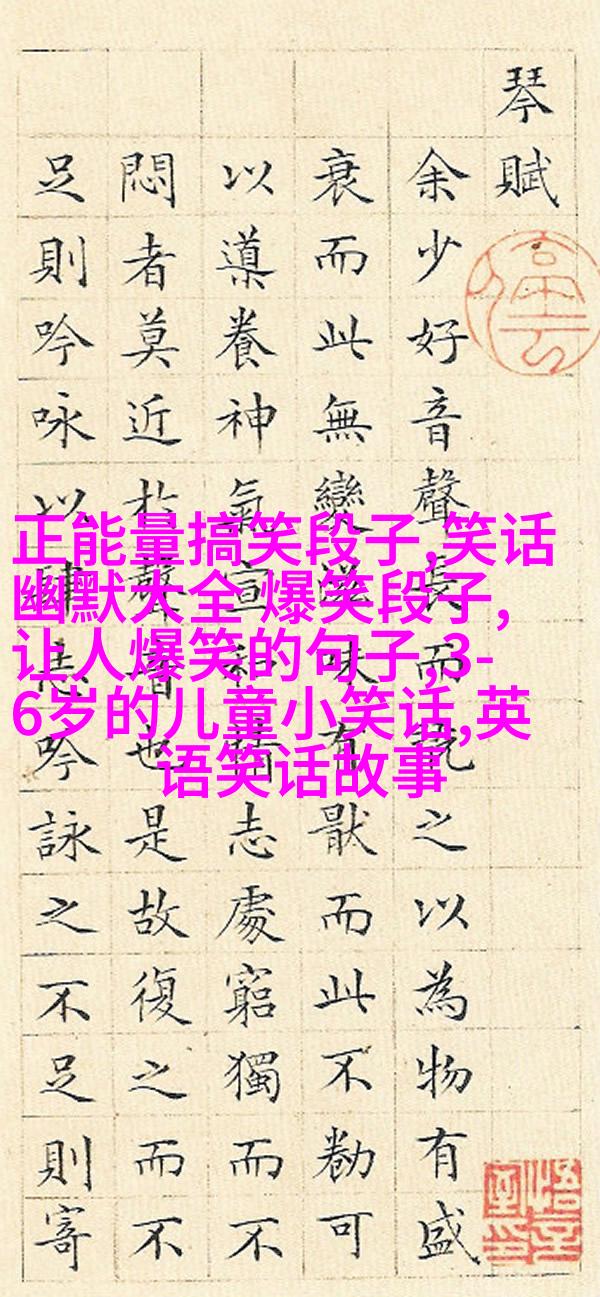 琴賦
余少好音聲長而翫之以為物有盛
衰而此無變滋味有猒而此不勌可
以導養神氣宣和情志處窮獨而不
悶者莫近於聲音也是故復之而不
足則吟咏以肆志吟詠之不足則寄
正能量搞笑段子,笑话
幽默大全 爆笑段子,
让人爆笑的句子,3-
6岁的儿童小笑话,英
语笑话故事